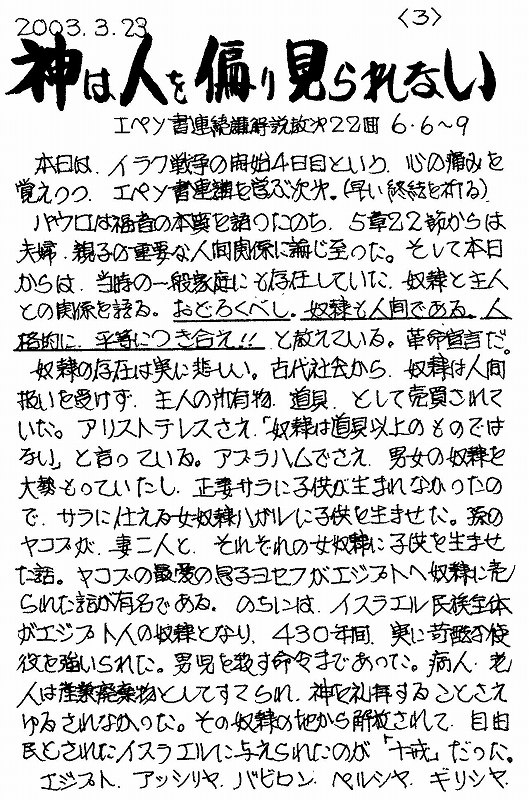 2003.3.23 〈3〉
神は人を偏り見られない
エペソ書連続講解説教第22回 6・6〜9
本日は、イラク戦争の開始4日目といり、心の痛みを
覚えつつ、エペソ書連講を学ぶ次第。(早い終結を祈る)
パウロは福音の本質を語ったのち、5章22節からは
夫婦、親子の重要な人間関係に論じ至った。そして本日
からは、当時の一般家庭にも存在していた、奴隷と主人
との関係を語る。おどろくべし。奴隷も人間である。人
格的に、平等につき合え!! と教えている。革命宣言だ。
奴隷の存在は実に悲しい。古代社会から、奴隷は人間
扱いを受けず、主人の所有物、道具、として売買されて
いた。アリストテレスさえ「奴隷は道具以上のものでは
ない」と言っている。アブラハムでさえ、男女の奴隷を
大勢もっていたし、正妻サラに子供が生まれなかったの
で、サラに仕える女奴隷ハガルに子供を生ませた。孫の
ヤコブが、妻二人と、それぞれの女奴隷に子供を生ませ
た話。ヤコブの最愛の息子ヨセフがエジプトへ奴隷に売
られた話が有名である。のちには、イスラエル民族全体
がエジプト人の奴隷となり、430年間、実に苛酷な使
役を強いられた。男児を殺す命令まであった。病人、老
人は産業廃棄物としてすてられ、神を礼拝することさえ
ゆるされなかった。その奴隷の地から解放されて、自由
民とされたイスラエルに与えられたのが「十戒」だった。
エジプト、アッシリヤ、バビロン、ペルシヤ、ギリシヤ、